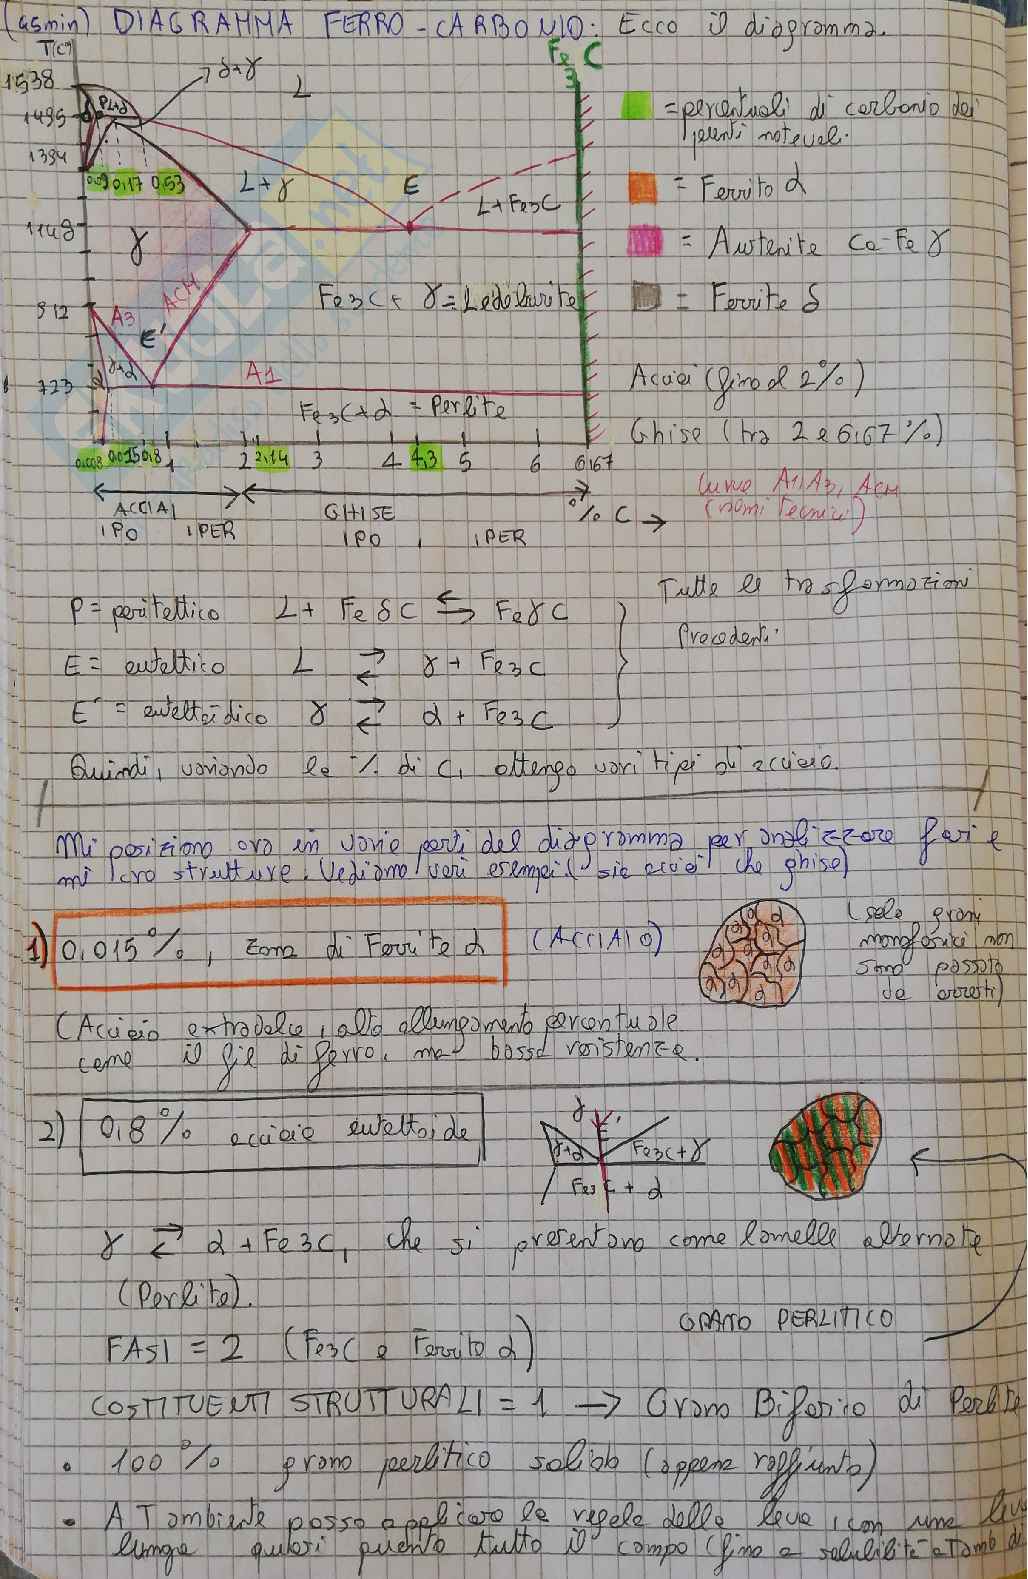 (45min) DIAGRAMMA FERRO-CARBONIO: Ecco il diagramma.
T(C°)
Fe3C
1538
1495
1394
1148
912
723
P L+δ
δ+γ
L
0,09 0,17 0,53
L+γ
E
L+Fe3C
γ
Fe3C + γ = Ledeburite
A3
ACM
E'
γ+α
α
A1
Fe3C+α = Perlite
0,008 0,015 0,8 1 2 2,14 3 4 4,3 5 6 6,67
ACCIAI
GHISE
% C →
IPO IPER
IPO IPER
= percentuali di carbonio dei
punti notevoli.
= Ferrite α
= Austenite Ca-Fe γ
= Ferrite δ
Acciai (fino al 2%)
Ghise (tra 2 e 6,67%)
Curve A1, A3, ACM
(nomi tecnici)
P = peritettico L + Fe δ C ⇆ Fe γ C
E = eutettico L ⇄ γ + Fe3C
E' = eutettoidico γ ⇄ α + Fe3C
Tutte le trasformazioni
precedenti.
Quindi, variando le % di C, ottengo vari tipi di acciaio.
Mi posiziono ora in varie parti del diagramma per analizzare fasi e
microstrutture. Vediamo vari esempi (sia acciai che ghise)
1) 0,015%, zona di Ferrite α (ACCIAIO)
α α α α α α α α α
(solo grani
monofasici non
sono passato
da arresti)
(Acciaio extradolce, alto allungamento percentuale
come il fil di ferro, ma bassa resistenza.
2) 0,8% acciaio eutettoide
γ
E'
γ+α
Fe3C+γ
Fe3C + α
γ ⇄ α + Fe3C, che si presentano come lamelle alternate
(Perlite).
GRANO PERLITICO
FASI = 2 (Fe3C e Ferrite α)
COSTITUENTI STRUTTURALI = 1 → Grano Bifasico di Perlite
• 100% grano perlitico solido (appena raggiunto)
• A T ambiente posso applicare la regola della leva, con una leva
lunga quasi quanto tutto il campo (fino a solubilità a Tamb di